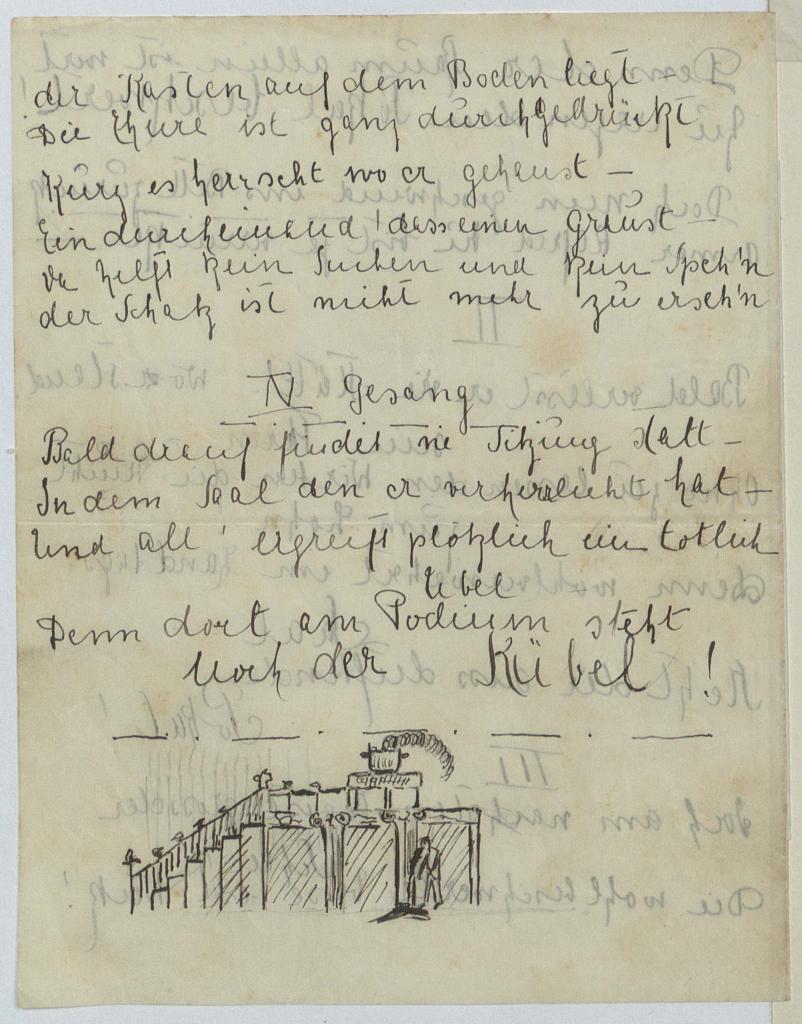 der Kasten auf dem Boden liegt –
Die Thure ist ganz durchgedrückt
Kurz es herrscht wo er gehaust –
Ein durcheinand' dass einen graust –
Da helft kein Suchen und kein Speh'n
der Schatz ist nicht mehr zu erseh'n
IV Gesang
Bald drauf findet die Sitzung statt –
In dem Saal den er verherrlicht hat –
Und all' ergreift plotzlich ein totlich
Ubel
Denn dort am Podium steht
noch der Kübel !